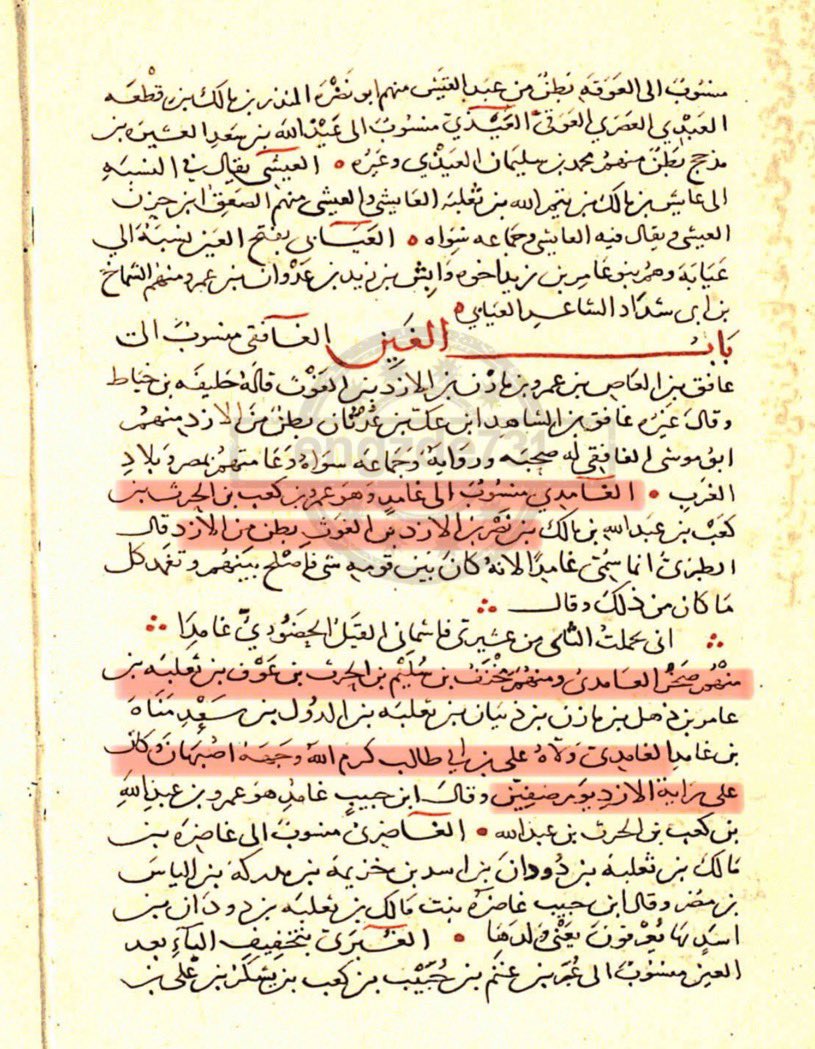 منسوب الى العوقة بطن من عبد القيس منهم ابو نضرة المنذر بن مالك بن قطعه
العبدي العصري العوقي العيذي منسوب الى عيذ الله بن سعد العشيره بن
مذحج بطن منهم محمد بن سليمان العيذي وغيره • العيشي يقال في النسبه
الى عايش بن مالك بن تيم الله بن ثعلبه العايشي والعيشي منهم الصعق ابن حزن
العيشي ويقال فيه العايشي وجماعه سواه • العيابي بفتح العين نسبة الى
عيابة وهم بنو عامر بن زيد اخوه وابش بن زيد بن عدوان بن عمرو منهم الشماخ
بن ابي شداد الشاعر العيابي
باب الغين الغافقي منسوب الى
غافق بن العاص بن عمرو بن مازن بن الازد بن الغوث قاله خليفه بن خياط
وقال غيره غافق بن الشاهد ابن عك بن عدثان بطن من الازد منهم
ابو موسى الغافقي له صحبه ورواية وجماعه سواه دعامتهم بمصر وبلاد
الغرب • الغامدي منسوب الى غامد وهو عمرو بن كعب بن الحرث بن
كعب بن عبد الله بن مالك بن نصر بن الازد بن الغوث بطن من الازد قال
الطبري انما سمي غامدا لانه كان بين قومه شي فاصلح بينهم وتغمد كل
ما كان من ذلك وقال
اني تحملت الثاى من عشيرتي فاسماني القيل الحضوري غامدا
منهم صخر الغامدي ومنهم مخنف بن سليم بن الحرث بن عوف بن ثعلبه بن
عامر بن ذهل بن مازن بن ذبيان بن ثعلبه بن الدول بن سعد مناة
بن غامد الغامدي ولاه علي بن ابي طالب كرم الله وجهه اصبهان وكان
على راية الازد يوم صفين وقال ابن حبيب غامد هو عمرو بن عبد الله
بن كعب بن الحرث بن عبد الله • الغاضري منسوب الى غاضره بن
مالك بن ثعلبه بن دودان بن اسد بن خزيمه بن مدركه بن الياس
بن مضر وقال ابن حبيب غاضرة بنت مالك بن ثعلبه بن دودان بن
اسد بها يعرفون يعني ولدها • الغبري بتخفيف الباء بعد
الغين منسوب الى غبر بن غنم بن حبيب بن كعب بن يشكر بن علي بن